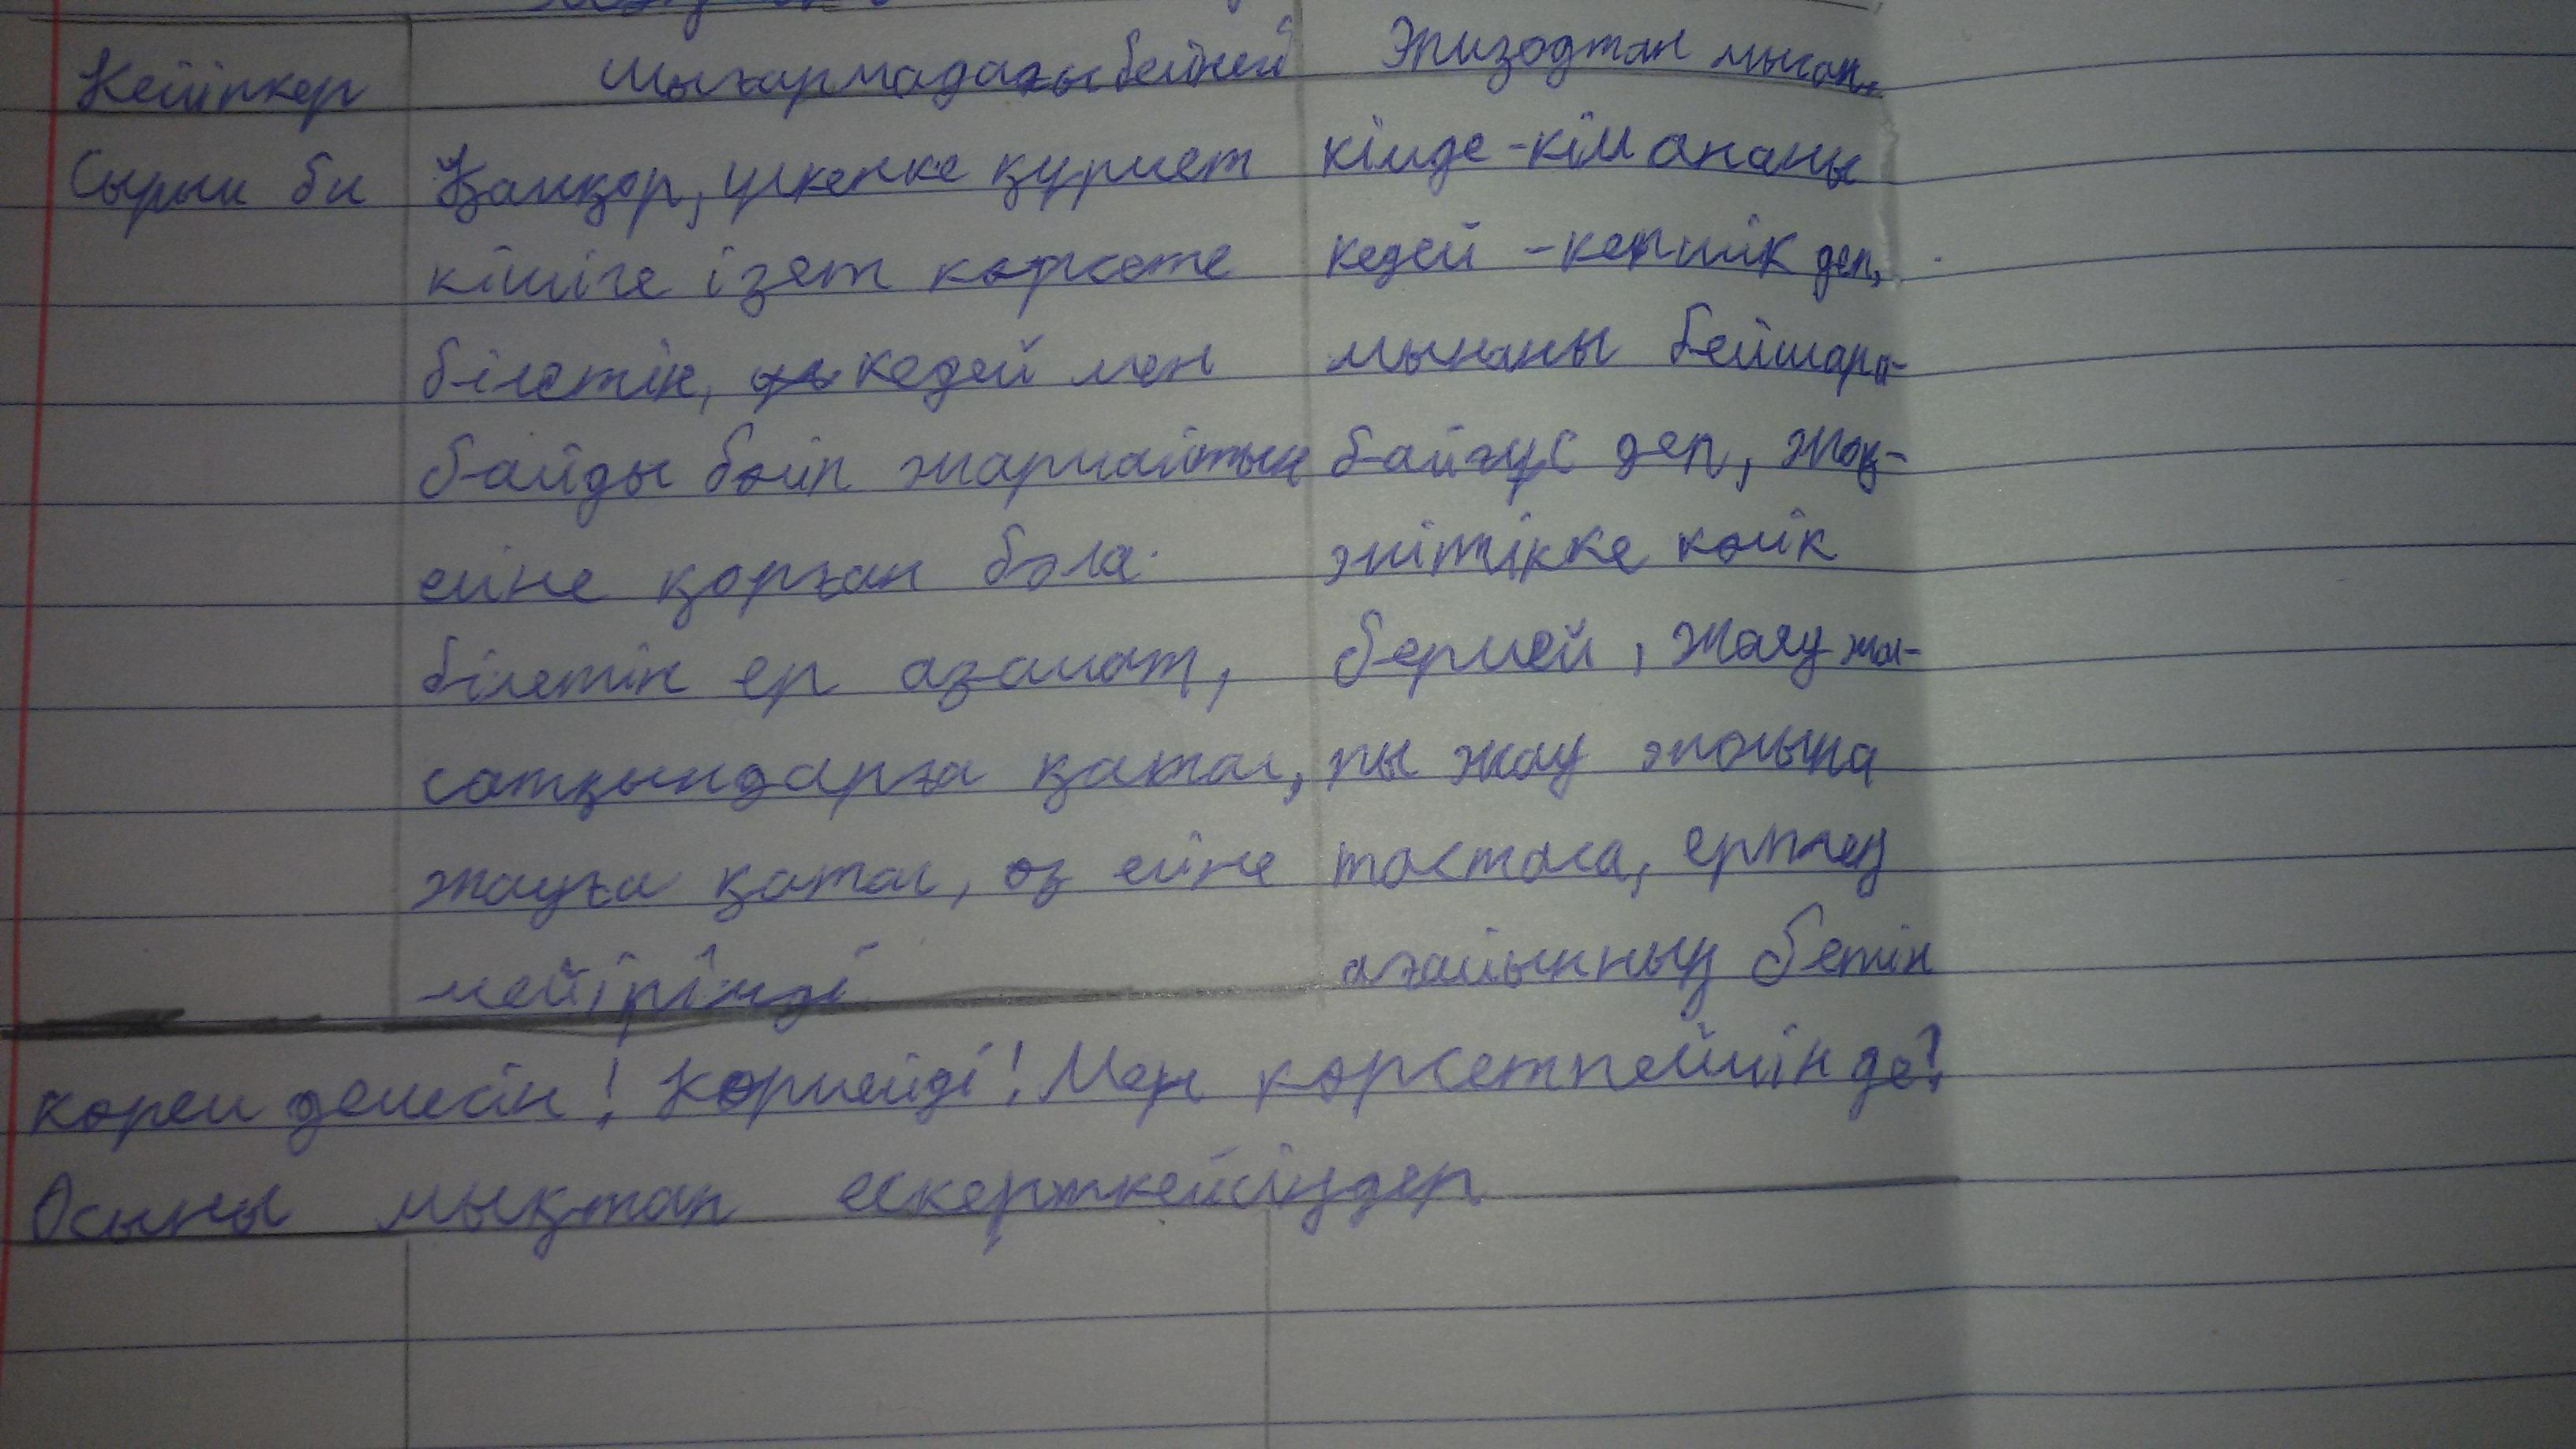 Кейіпкер шығармадағы бейнесі Эпизодтан мысал
Сырым би Қамқор, үлкенке құрмет кімде-кім ананы
кішіге ізет көрсете кедей-кепшік деп,
білетін, кедей мен мынаны бейшара-
байды бөліп жармайтын байғұс деп, жоқ-
еліне қорған бола жітікке көлік
білетін ер азамат, бермей, жаяу-жал-
сатқындарға қатал, пы жау жолына
жауға қатал, өз еліне тастаса, ертең
мейірімді ағайынның бетін
көрем демесін! Көрмейді! Мен көрсетпеймін де!
Осыны мықтап ескерткейсіңдер